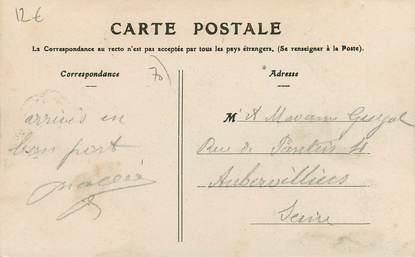 12€
CARTE POSTALE
La Correspondance au recto n'est pas acceptée par tous les pays étrangers, (Se renseigner à la Poste).
Correspondance
70
Adresse
arrivés en
bon port
M'
Rue de 4
Aubervilliers
Seine